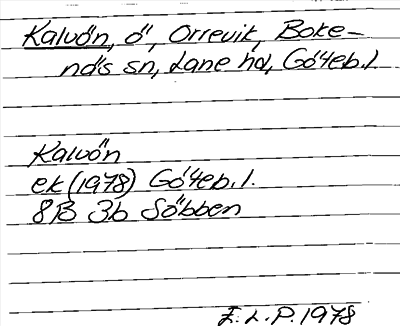 Kalvön, ö, Orrevik, Boke-
näs sn, Lane hd, Göteb.l.
Kalvön
ek (1978) Göteb.l.
8B 3b Söbben
E.L.P. 1978